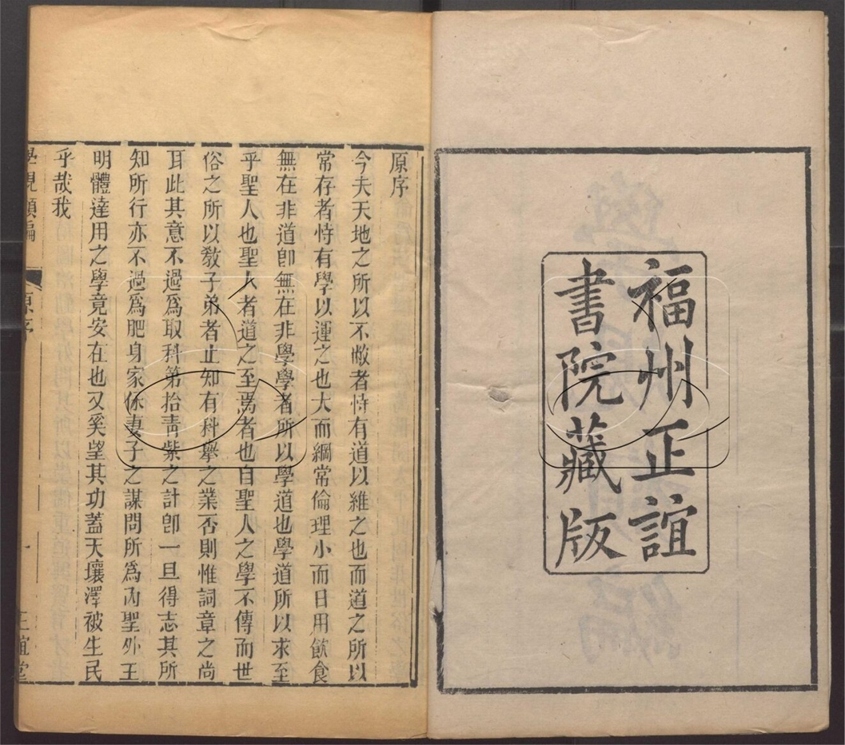 福州正誼
書院藏版
原序
今夫天地之所以不敝者恃有道以維之也而道之所以
常存者恃有學以運之也大而綱常倫理小而日用飲食
無在非道卽無在非學學者所以學道也學道所以求至
乎聖人也聖人者道之至焉者也自聖人之學不傳而世
俗之所以敎子弟者止知有科舉之業否則惟詞章之尚
耳此其意不過爲取科第拾青紫之計卽一旦得志其所
知所行亦不過爲肥身家保妻子之謀問所爲內聖外王
明體達用之學竟安在也又奚望其功蓋天壤澤被生民
乎哉我
學規類編 原序 一 正誼堂